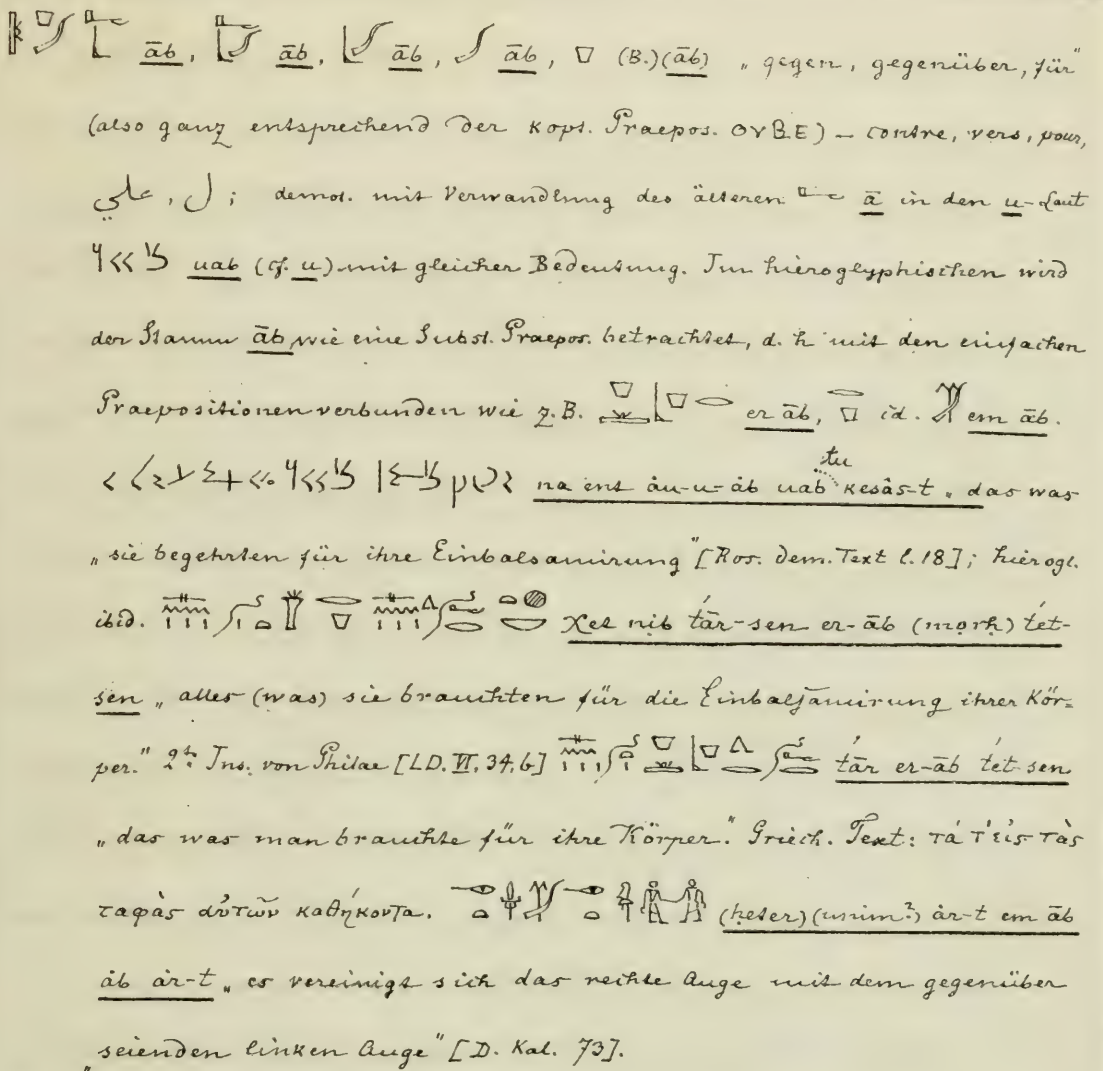 āb, āb, āb, āb, (B.)(āb) „gegen, gegenüber, für"
(also ganz entsprechend der kopt. Praepos. ΟΥΒΕ) – contre, vers, pour,
ل , علي ; demot. mit Verwandlung des älteren ā in den u-Laut
uab (cf. u) mit gleicher Bedeutung. Im hieroglyphischen wird
der Stamm āb wie eine Subst. Praepos. betrachtet, d. h mit den einfachen
Praepositionen verbunden wie z. B. er āb, id. em āb.
na ent àu-u-àb uab tu kesàs-t „das was
„sie begehrten für ihre Einbalsamirung" [Ros. dem. Text l. 18]; hierogl.
ibid. χet nib t́ār-sen er-āb (morḥ) t́et-
sen „alles (was) sie brauchten für die Einbalsamirung ihrer Kör=
per." 2te Ins. von Philae [LD. VI, 34, b] t́ār er-āb t́et-sen
„das was man brauchte für ihre Körper". Griech. Text: τά τ'εἰς τὰς
ταφὰς αὐτῶν καθήκοντα. (ḥeter) (unim?) àr-t em āb
àb àr-t „es vereinigt sich das rechte Auge mit dem gegenüber
„seienden linken Auge" [D. Kal. 73].